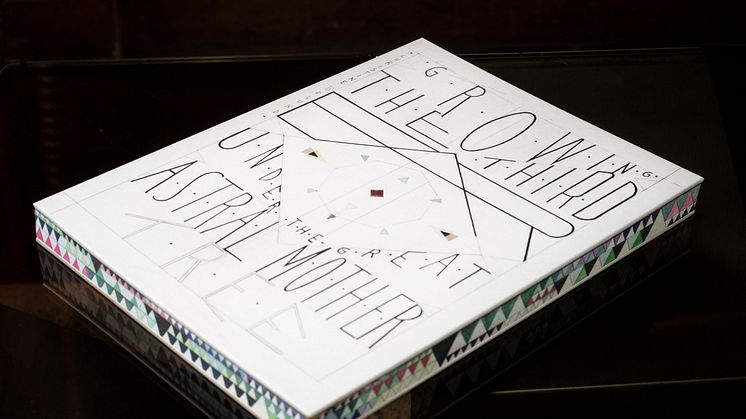 G·R·O·W·I·N·G·
T·H·E T·H·I·R·D
U·N·D·E·R·T·H·E·G·R·E·A·T
A·S·T·R·A·L M·O·T·H·E·R
T·R·E·E